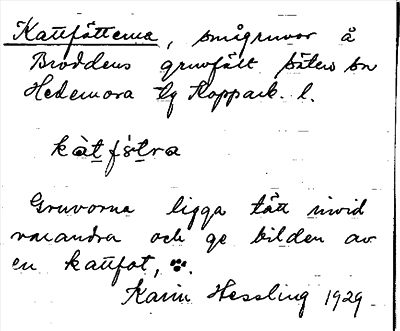 Kattfötterna, smågruvor å
Broddens gruvfält Säters sn
Hedemora tg Kopparb. l.
kàtfø̀tra
Gruvorna ligga tätt invid
varandra och ge bilden av
en kattfot,
Karin Hessling 1929